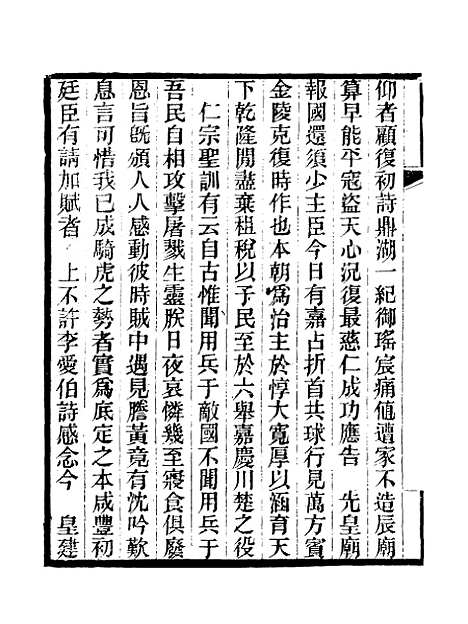 仰者顧復初詩鼎湖一紀御瑤宸痛値遭家不造辰廟
算早能平寇盜天心況復最慈仁成功應告　先皇廟
報國還須少主臣今日有嘉占折首共球行見萬方賓
金陵克復時作也本朝爲治主於惇大寬厚以涵育天
下乾隆閒盡棄租稅以予民至於六舉嘉慶川楚之役
仁宗聖訓有云自古惟聞用兵于敵國不聞用兵于
吾民自相攻擊屠戮生靈朕日夜哀憐幾至寢食俱廢
恩旨旣頒人人感動彼時賊中遇見謄黃竟有沈吟歎
息言可惜我已成騎虎之勢者實爲底定之本咸豐初
廷臣有請加賦者　上不許李愛伯詩感念今　皇建